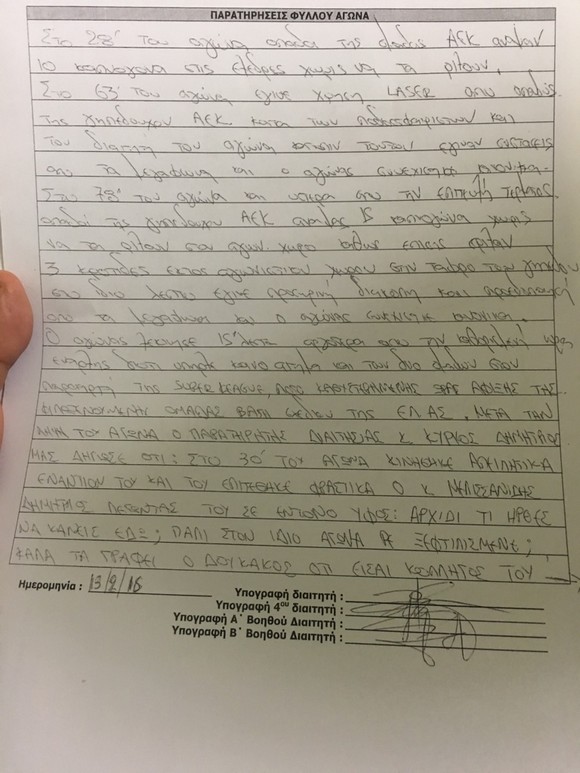 ΠΑΡΑΤΗΡΗΣΕΙΣ ΦΥΛΛΟΥ ΑΓΩΝΑ
Στο 28' του αγώνα οπαδοί της ΑΕΚ άναψαν
10 καπνογόνα στις εξέδρες χωρίς να τα ρίξουν.
Στο 63' του αγώνα έγινε χρήση LASER από οπαδούς
της γηπεδούχου ΑΕΚ κατά των και
του διαιτητή του αγώνα κατόπιν τούτου έγιναν συστάσεις
από τα μεγάφωνα και ο αγώνας συνεχίστηκε
Στο 78' του αγώνα και ύστερα από την επίτευξη τέρματος
οπαδοί της γηπεδούχου ΑΕΚ άναψαν 15 καπνογόνα χωρίς
να τα ρίξουν στον αγων. χώρο καθώς επίσης έριξαν
3 κροτίδες εκτός αγωνιστικού χώρου στην του γηπέδου
στο ίδιο λεπτό έγινε διακοπή και
από τα μεγάφωνα και ο αγώνας συνεχίστηκε κανονικά.
Ο αγώνας ξεκίνησε 15' λεπτά αργότερα από την καθορισμένη ώρα
έναρξης διότι υπήρξε κοινό αίτημα και των δύο ομάδων στον
παρατηρητή της SUPER LEAGUE, ΛΟΓΩ ΚΑΘΥΣΤΕΡΗΜΕΝΗΣ ΑΦΙΞΗΣ ΤΗΣ
ΦΙΛΟΞΕΝΟΥΜΕΝΗΣ ΟΜΑΔΑΣ ΒΑΣΗ ΤΗΣ ΕΛ.ΑΣ. ΜΕΤΑ ΤΗΝ
ΛΗΞΗ ΤΟΥ ΑΓΩΝΑ Ο ΠΑΡΑΤΗΡΗΤΗΣ ΔΙΑΙΤΗΣΙΑΣ Κ. ΚΥΡΚΟΣ ΔΗΜΗΤΡΙΟΣ
ΜΑΣ ΔΗΛΩΣΕ ΟΤΙ: ΣΤΟ 30' ΤΟΥ ΑΓΩΝΑ ΚΙΝΗΘΗΚΕ ΑΠΕΙΛΗΤΙΚΑ
ΕΝΑΝΤΙΟΝ ΤΟΥ ΚΑΙ ΤΟΥ ΕΠΙΤΕΘΗΚΕ ΦΡΑΣΤΙΚΑ Ο Κ. ΜΕΛΙΣΣΑΝΙΔΗΣ
ΔΗΜΗΤΡΙΟΣ ΛΕΓΟΝΤΑΣ ΤΟΥ ΣΕ ΕΝΤΟΝΟ ΥΦΟΣ: ΑΡΧΙΔΙ ΤΙ ΗΡΘΕΣ
ΝΑ ΚΑΝΕΙΣ ΕΔΩ; ΠΑΛΙ ΣΤΟΝ ΙΔΙΟ ΑΓΩΝΑ ΡΕ ΞΕΦΤΙΛΙΣΜΕΝΕ;
ΚΑΛΑ ΤΑ ΓΡΑΦΕΙ Ο ΔΟΥΚΑΚΟΣ ΟΤΙ ΕΙΣΑΙ ΚΟΛΛΗΤΟΣ ΤΟΥ
Ημερομηνία : 13/2/16
Υπογραφή διαιτητή :
Υπογραφή 4ου διαιτητή :
Υπογραφή Α΄ Βοηθού Διαιτητή :
Υπογραφή Β΄ Βοηθού Διαιτητή :